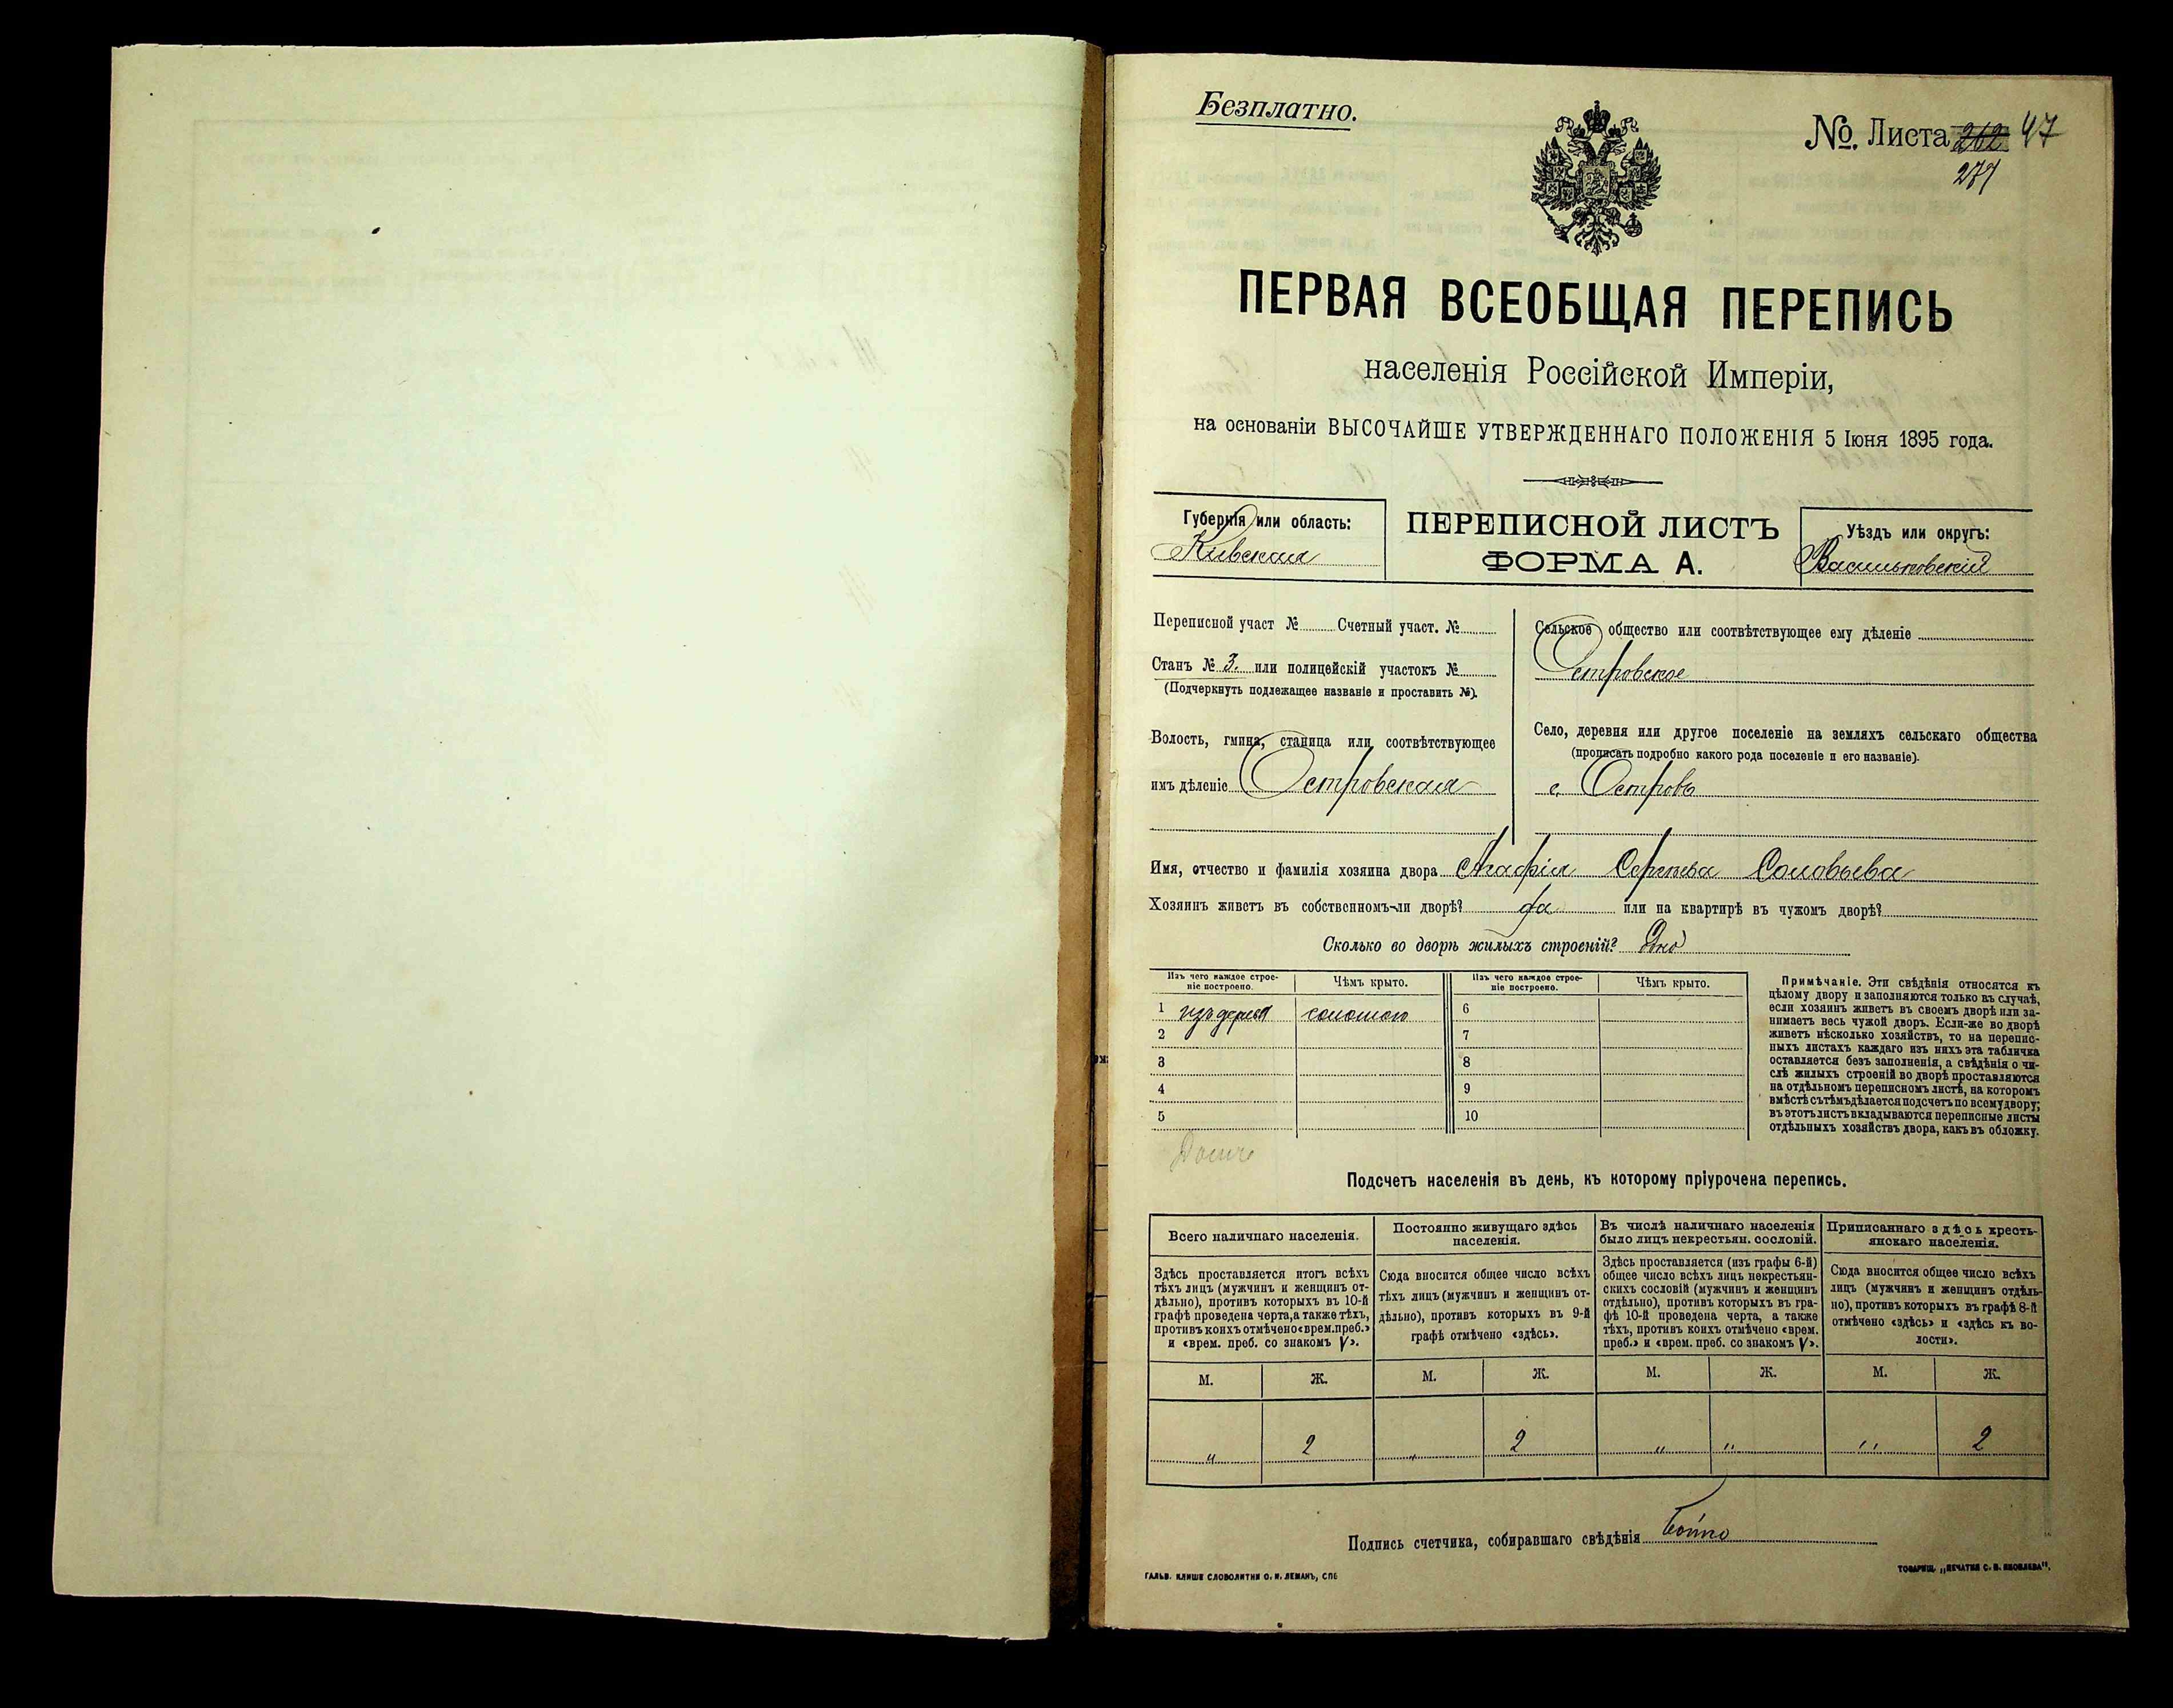 Безплатно.
№. Листа 262 47
274
ПЕРВАЯ ВСЕОБЩАЯ ПЕРЕПИСЬ
населенія Россійской Имперіи,
на основаніи ВЫСОЧАЙШЕ УТВЕРЖДЕННАГО ПОЛОЖЕНІЯ 5 Іюня 1895 года.
Губернія или область:
Кіевская
ПЕРЕПИСНОЙ ЛИСТЪ
ФОРМА А.
Уѣздъ или округъ:
Васильковскій
Переписной участ № Счетный участ. №
Станъ № 3. или полицейскій участокъ №
(Подчеркнуть подлежащее названіе и проставить №).
Волость, гмина, станица или соотвѣтствующее
имъ дѣленіе Островская
Сельское общество или соотвѣтствующее ему дѣленіе
Островское
Село, деревня или другое поселеніе на земляхъ сельскаго общества
(прописать подробно какого рода поселеніе и его названіе).
с. Островъ
Имя, отчество и фамилія хозяина двора Агафія Сергѣева Соловьева
Хозяинъ живетъ въ собственномъ-ли дворѣ? да или на квартирѣ въ чужомъ дворѣ?
Сколько во дворѣ жилыхъ строеній? Одно
Изъ чего каждое строе-
ніе построено.
Чѣмъ крыто.
Изъ чего каждое строе-
ніе построено.
Чѣмъ крыто.
1 изъ дерева соломою 6
2 7
3 8
4 9
5 10
Примѣчаніе. Эти свѣдѣнія относятся къ
цѣлому двору и заполняются только въ случаѣ,
если хозяинъ живетъ въ своемъ дворѣ или за-
нимаетъ весь чужой дворъ. Если-же во дворѣ
живетъ нѣсколько хозяйствъ, то на перепис-
ныхъ листахъ каждаго изъ нихъ эта табличка
оставляется безъ заполненія, а свѣдѣнія о чи-
слѣ жилыхъ строеній во дворѣ проставляются
на отдѣльномъ переписномъ листѣ, на которомъ
вмѣстѣ съ тѣмъ дѣлается подсчетъ по всему двору;
въ этотъ листъ вкладываются переписные листы
отдѣльныхъ хозяйствъ двора, какъ въ обложку.
Подсчетъ населенія въ день, къ которому пріурочена перепись.
Всего наличнаго населенія.
Здѣсь проставляется итогъ всѣхъ
тѣхъ лицъ (мужчинъ и женщинъ от-
дѣльно), противъ которыхъ въ 10-й
графѣ проведена черта, а также тѣхъ,
противъ коихъ отмѣчено «врем. преб.»
и «врем. преб. со знакомъ V».
Постоянно живущаго здѣсь
населенія.
Сюда вносится общее число всѣхъ
тѣхъ лицъ (мужчинъ и женщинъ от-
дѣльно), противъ которыхъ въ 9-й
графѣ отмѣчено «здѣсь».
Въ числѣ наличнаго населенія
было лицъ некрестьян. сословій.
Здѣсь проставляется (изъ графы 6-й)
общее число всѣхъ лицъ некрестьян-
скихъ сословій (мужчинъ и женщинъ
отдѣльно), противъ которыхъ въ гра-
фѣ 10-й проведена черта, а также
тѣхъ, противъ коихъ отмѣчено «врем.
преб.» и «врем. преб. со знакомъ V».
Приписаннаго здѣсь кресть-
янскаго населенія.
Сюда вносится общее число всѣхъ
лицъ (мужчинъ и женщинъ отдѣль-
но), противъ которыхъ въ графѣ 8-й
отмѣчено «здѣсь» и «здѣсь къ во-
лости».
М. Ж. М. Ж. М. Ж. М. Ж.
" 2 " 2 " " " 2
Подпись счетчика, собиравшаго свѣдѣнія Бойко
ГАЛЬВ. КЛИШЕ СЛОВОЛИТНИ О. И. ЛЕМАНЪ, СПБ
ТОВАРИЩ. „ПЕЧАТНЯ С. П. ЯКОВЛЕВА".